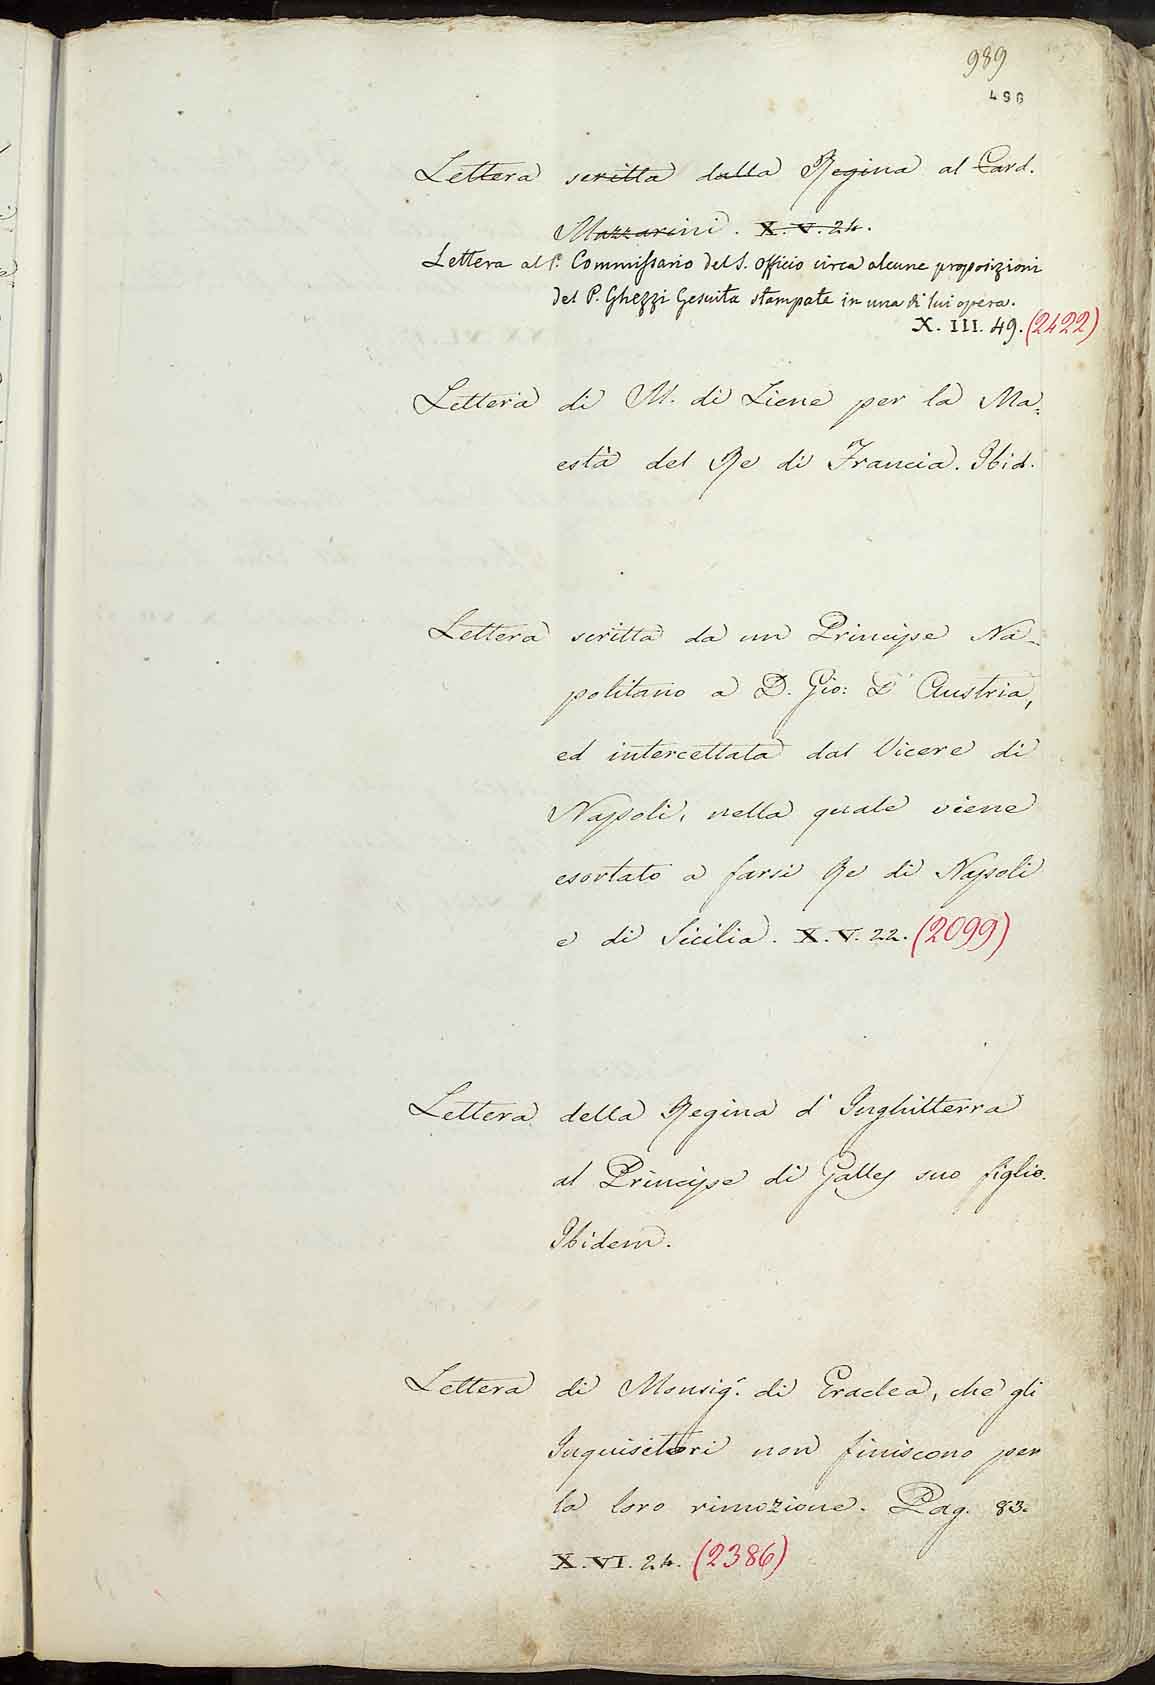 989
496
Lettera scritta dalla Regina al Card.
Mazzarini. X. V. 24.
Lettera al P. Commissario del S. Officio circa alcune proposizioni
del P. Ghezzi Gesuita stampate in una di lui opera.
X. III. 49. (2422)
Lettera di M. di Liene per la Ma=
està del Re di Francia. Ibid.
Lettera scritta da un Principe Na=
politano a D. Gio: D' Austria,
ed intercettata dal Vicere di
Napoli, nella quale viene
esortato a farsi Re di Napoli
e di Sicilia. X. V. 22. (2099)
Lettera della Regina d' Inghilterra
al Principe di Galles suo figlio.
Ibidem.
Lettera di Monsig.r di Eraclea, che gli
Inquisitori non finiscono per
la loro rimozione. Pag. 83.
X. VI. 24. (2386)